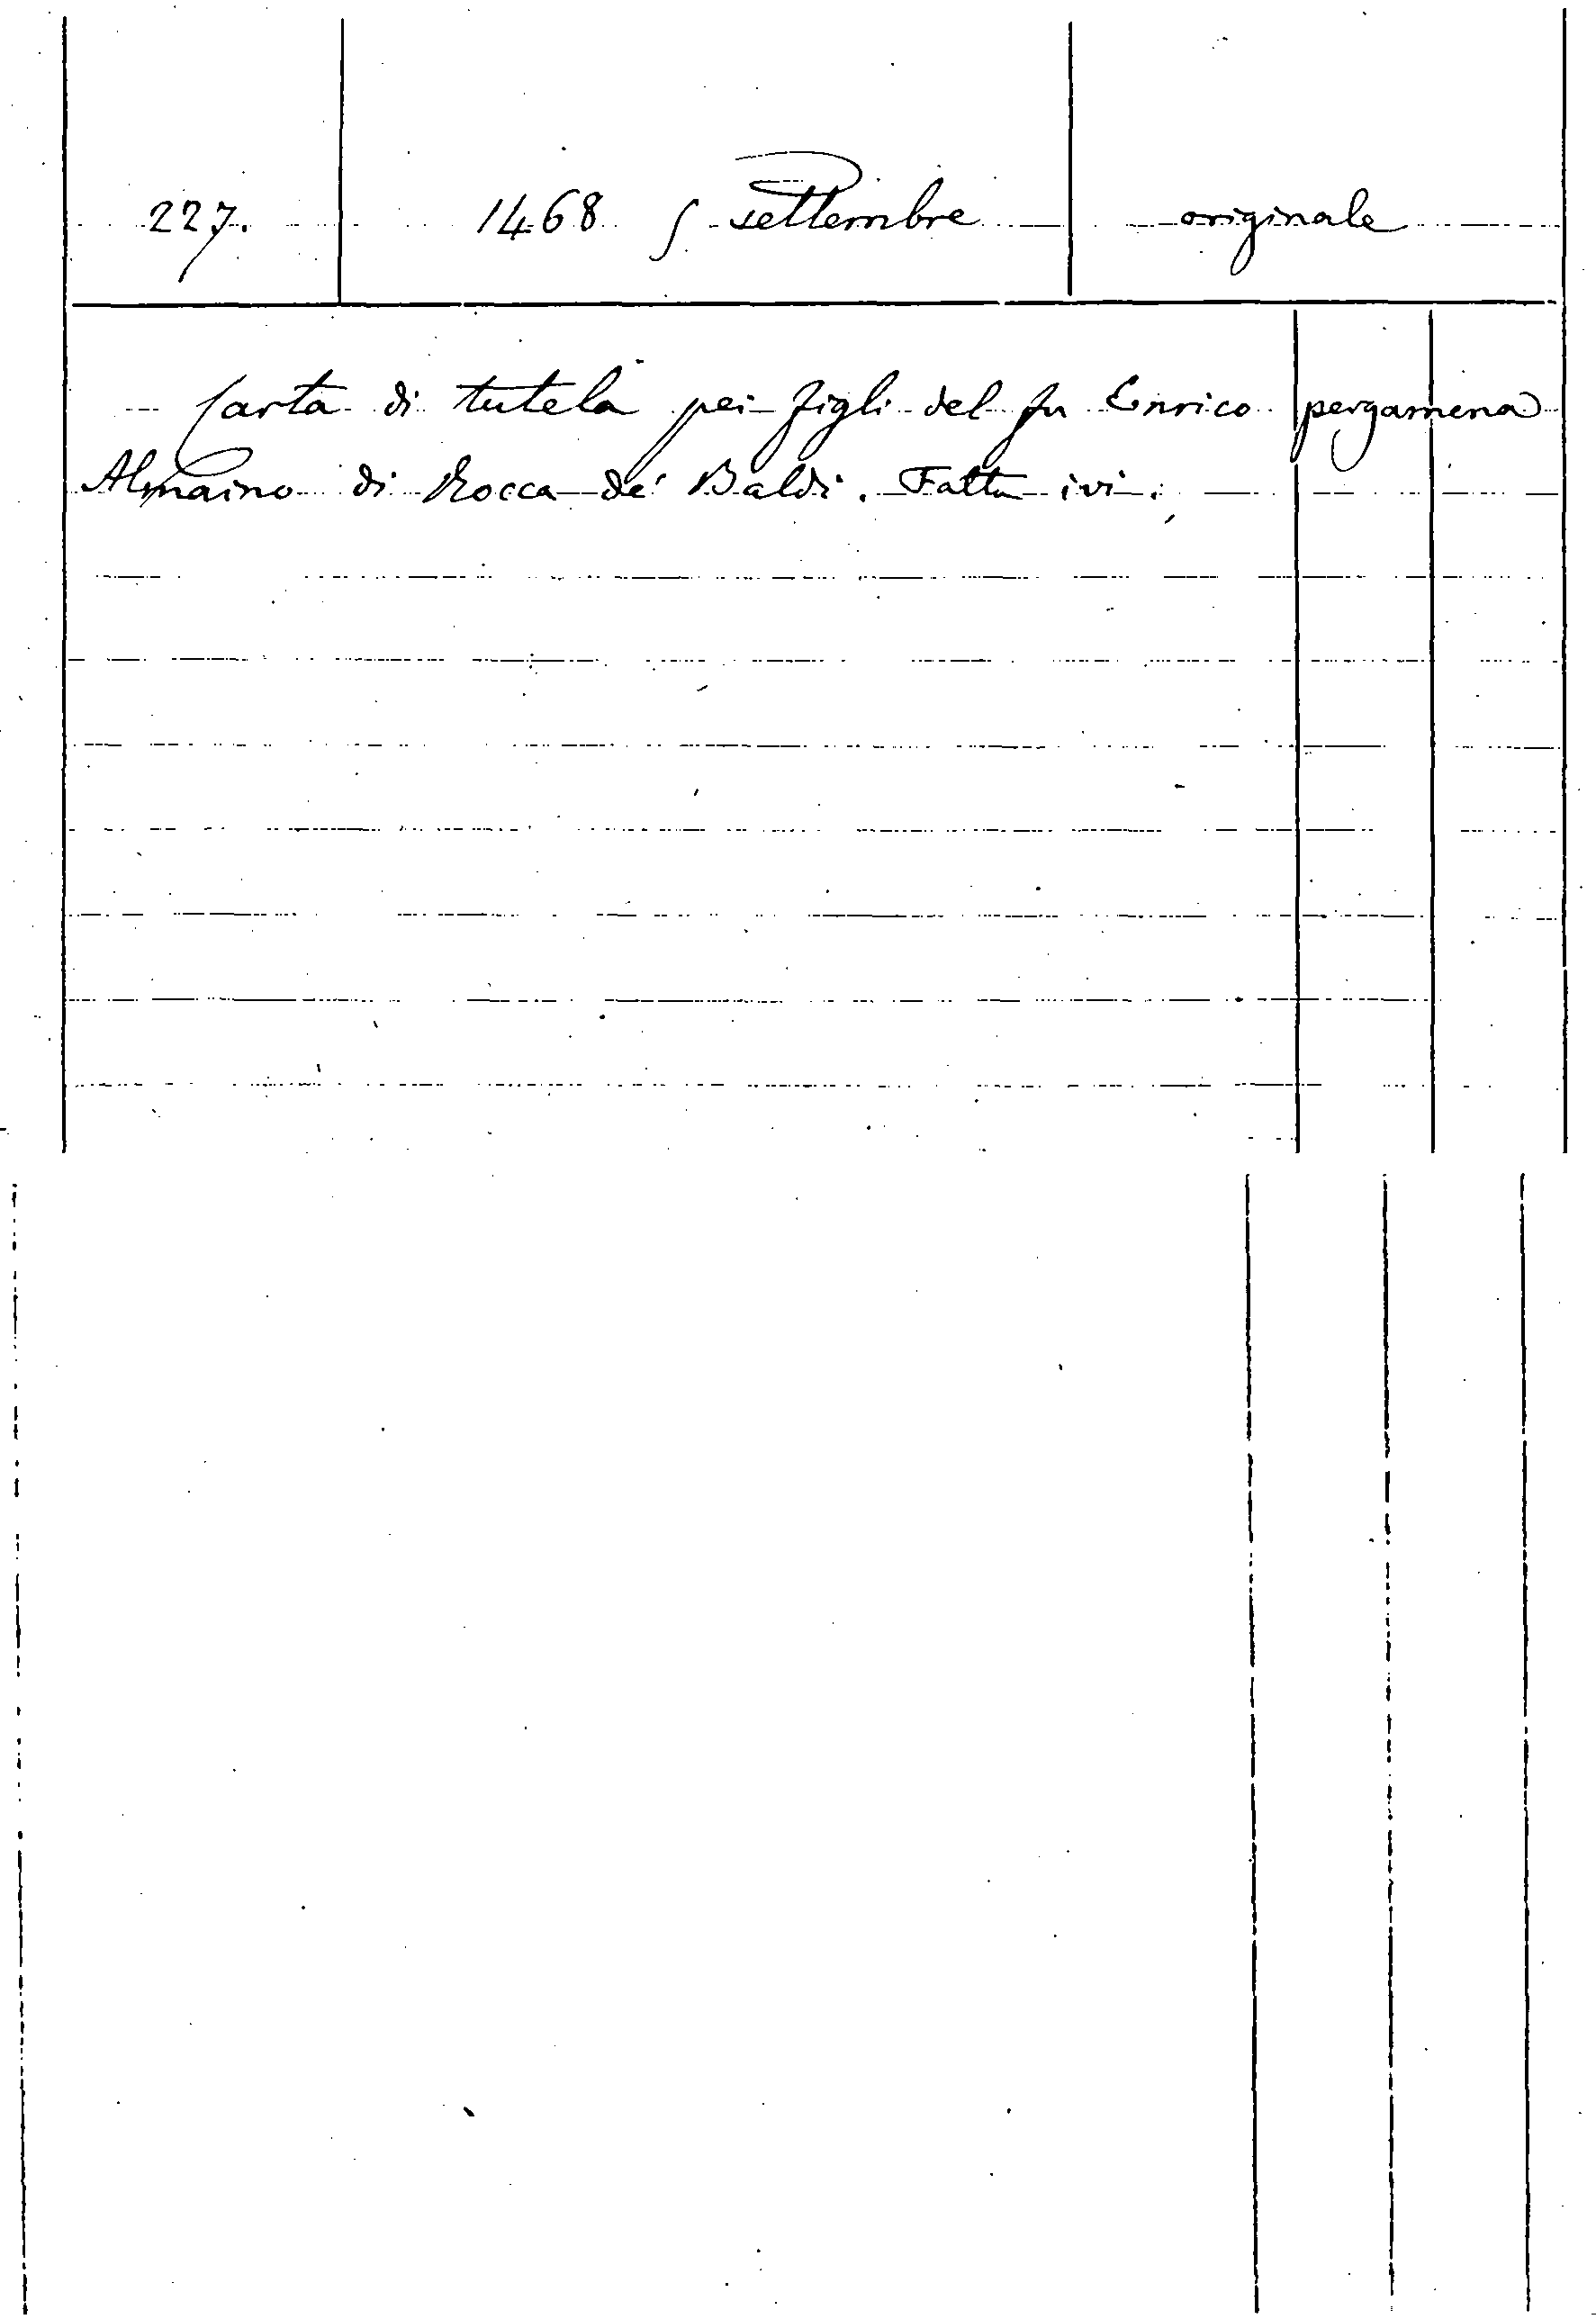 227. 1468 5 settembre originale
Carta di tutela pei figli del fu Enrico pergamena
Almaino di Rocca de' Baldi. Fatta ivi.